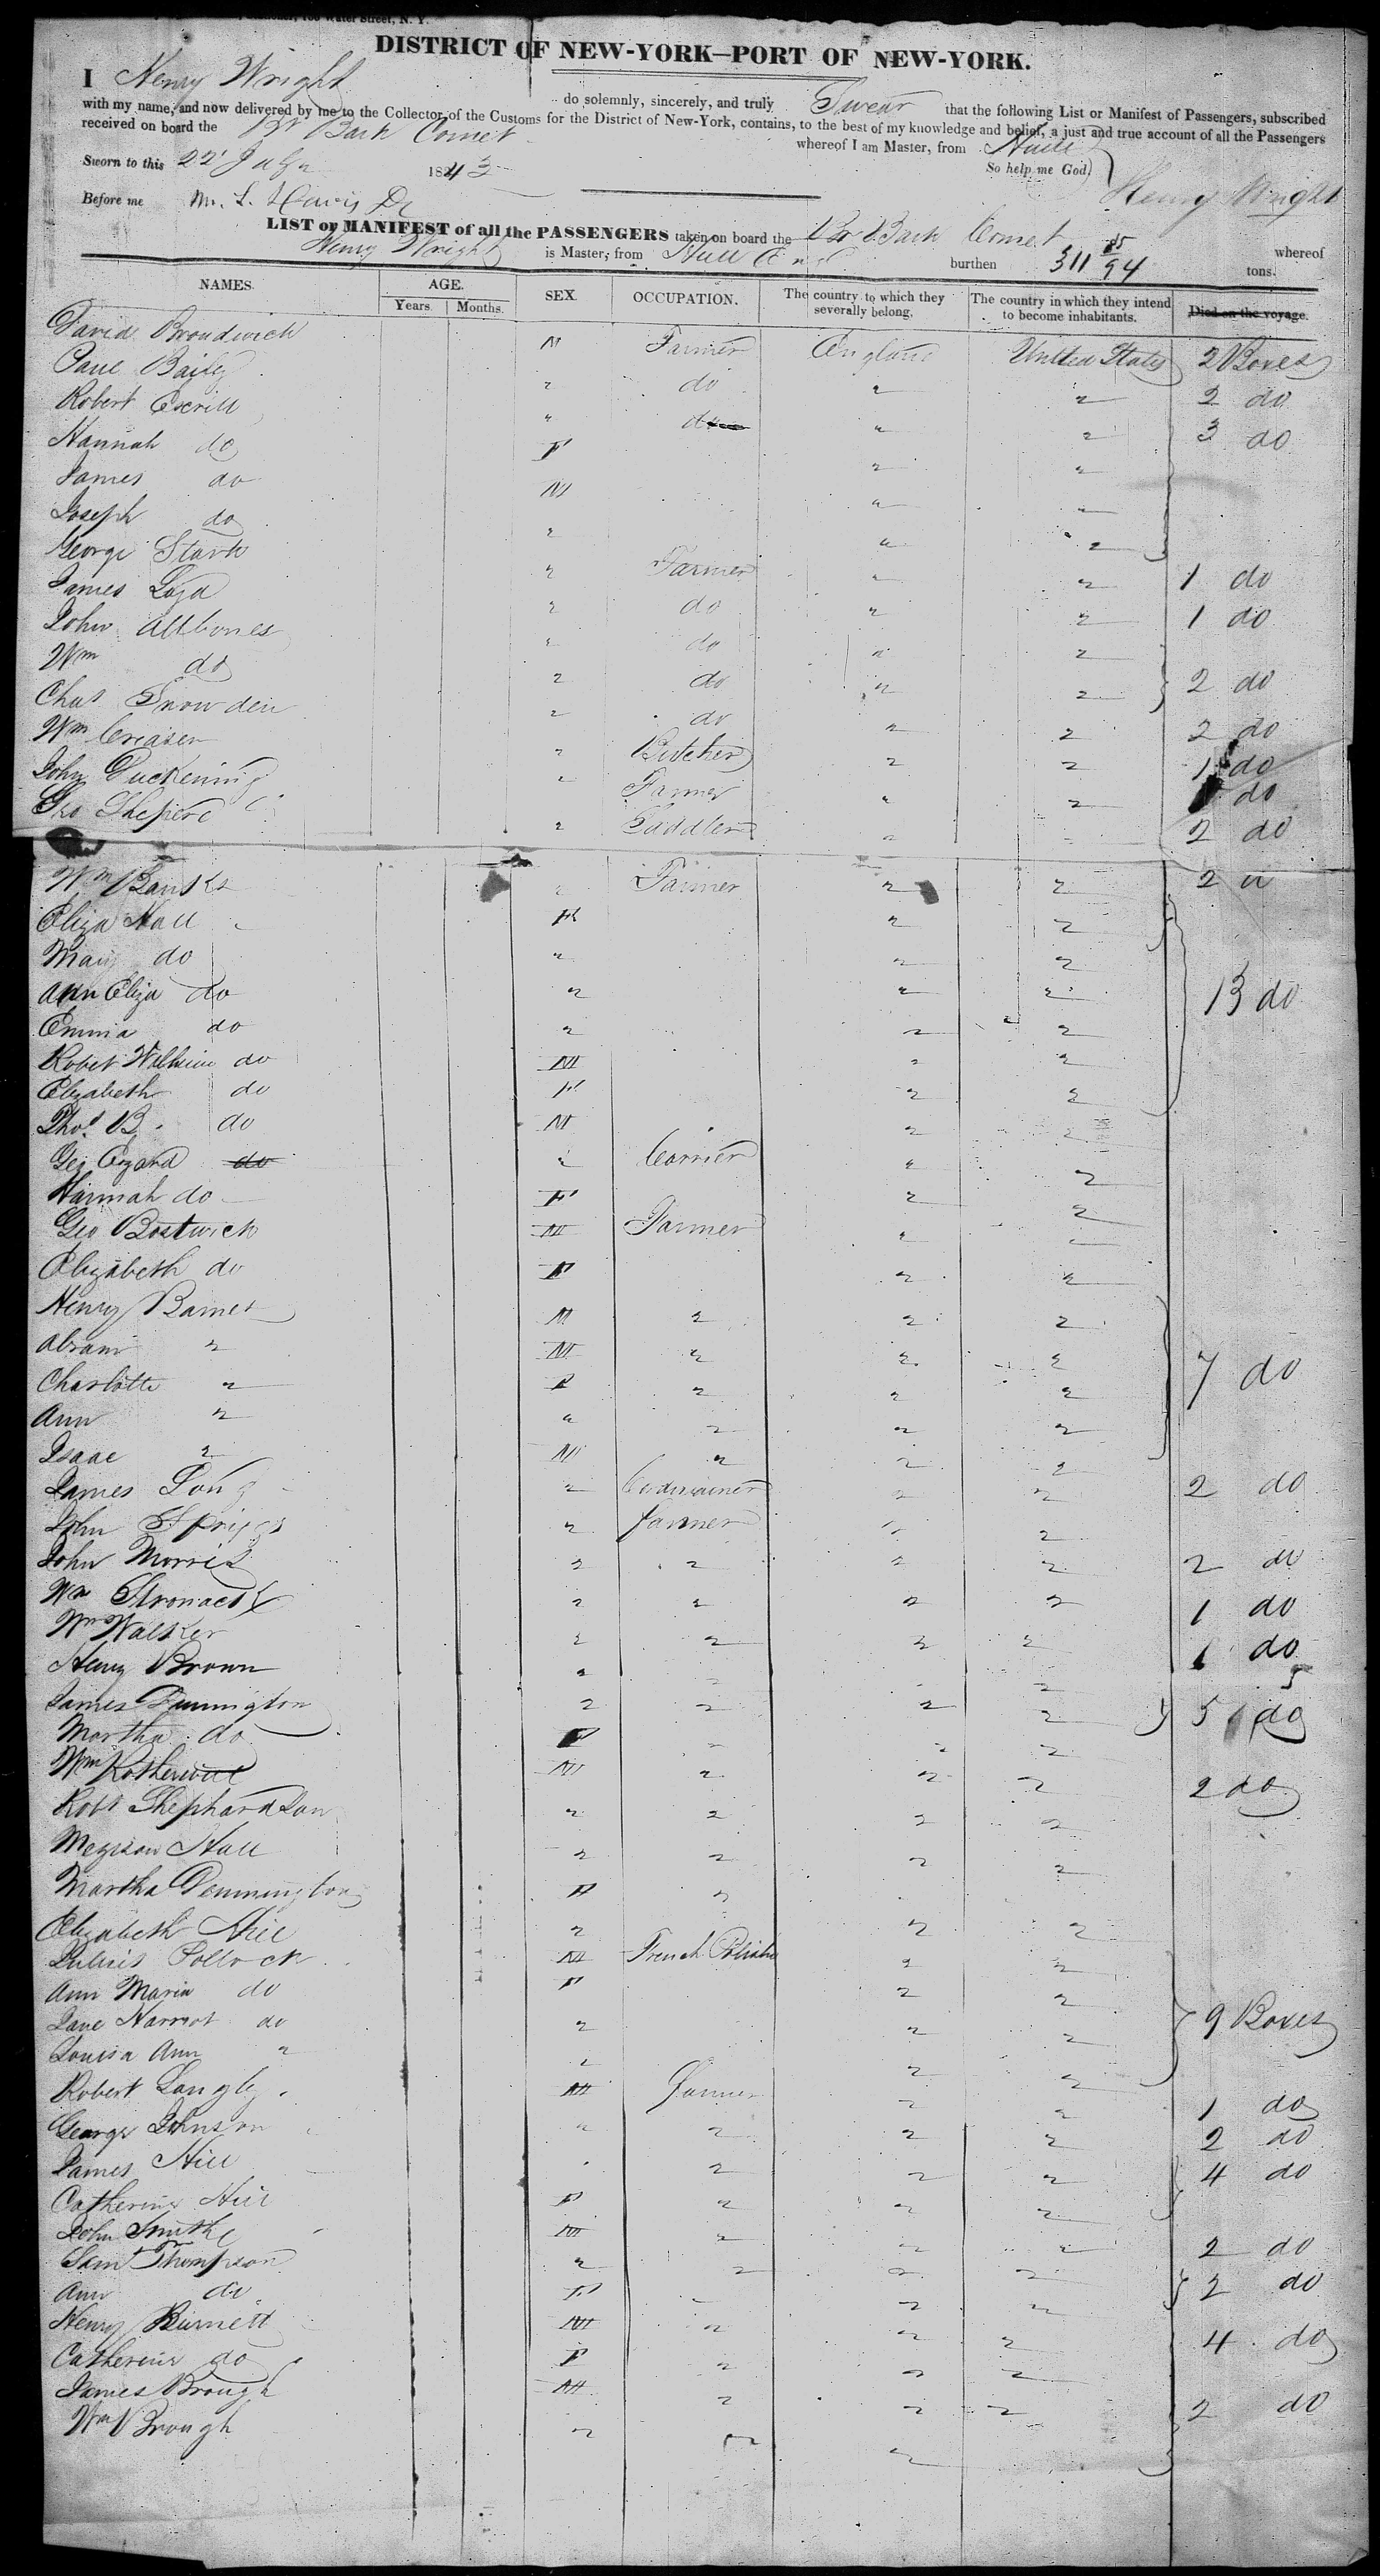 Water Street, N. Y.
DISTRICT OF NEW-YORK—PORT OF NEW-YORK.
I Henry Wright do solemnly, sincerely, and truly Swear that the following List or Manifest of Passengers, subscribed
with my name, and now delivered by me to the Collector of the Customs for the District of New-York, contains, to the best of my knowledge and belief, a just and true account of all the Passengers
received on board the Br Bark Comet whereof I am Master, from Hull
Sworn to this 22 July 1843 So help me God.
Before me Henry Wright
LIST or MANIFEST of all the PASSENGERS taken on board the Br Bark Comet whereof
Henry Wright is Master, from Hull Eng burthen 311 85/94 tons.
NAMES. AGE. SEX. OCCUPATION. The country to which they severally belong. The country in which they intend to become inhabitants. Died on the voyage.
Years. Months.
David Broudwich M Farmer England United States 2 Boxes
Paul Bailey " do " " 2 do
Robert " do " " 3 do
Hannah do F " "
James do M " "
Joseph do " " "
George Stark " Farmer " " 1 do
James " do " " 1 do
John Allbones " do " "
Wm do " do " " 2 do
Chas Snowden " do " " 2 do
Wm Creaser " Butcher " " 1 do
John Duckening " Farmer " " do
Sheperd " Saddler " " 2 do
Wm Banks " Farmer " " 2 "
Eliza Hall F " "
Mary do " " "
Ann Eliza do " " " 13 do
Emma do " " "
Robert William do M " "
Elizabeth do F " "
Thos B. do M " "
Geo do " Carrier " "
Hannah do F " "
Geo Bostwick M Farmer " "
Elizabeth do F " "
Henry Barnes M " " "
Abram " M " " "
Charlotte " F " " " 7 do
Ann " " " " "
Isaac " M " " "
James Long " Cordwainer " " 2 do
John Spriggs " farmer " "
John Morris " " " " 2 do
Wm " " " " 1 do
Wm Walker " " " " 1 do
Henry Brown " " " 5
James Dunnington " " " " 5 do
Martha do F " " "
Wm M " " " 2 do
Robt Shephardson " " " "
Hall " " " "
Martha Dennington F "
Elizabeth Hill " " "
Julius Pollock M French Polisher " "
Ann Maria do F " "
Jane Harriot do " " " 9 Boxes
Louisa Ann " " " "
Robert Langley M farmer " " 1 do
George Johnson " " " " 2 do
James Hill " " " 4 do
Catherine Hill F " " "
John Smith M " " " 2 do
Saml Thompson " " " "
Ann do F " " " 2 do
Henry Burnett M " " " 4 do
Catherine do F " " "
James Brough M " " " 2 do
Wm Brough " " "